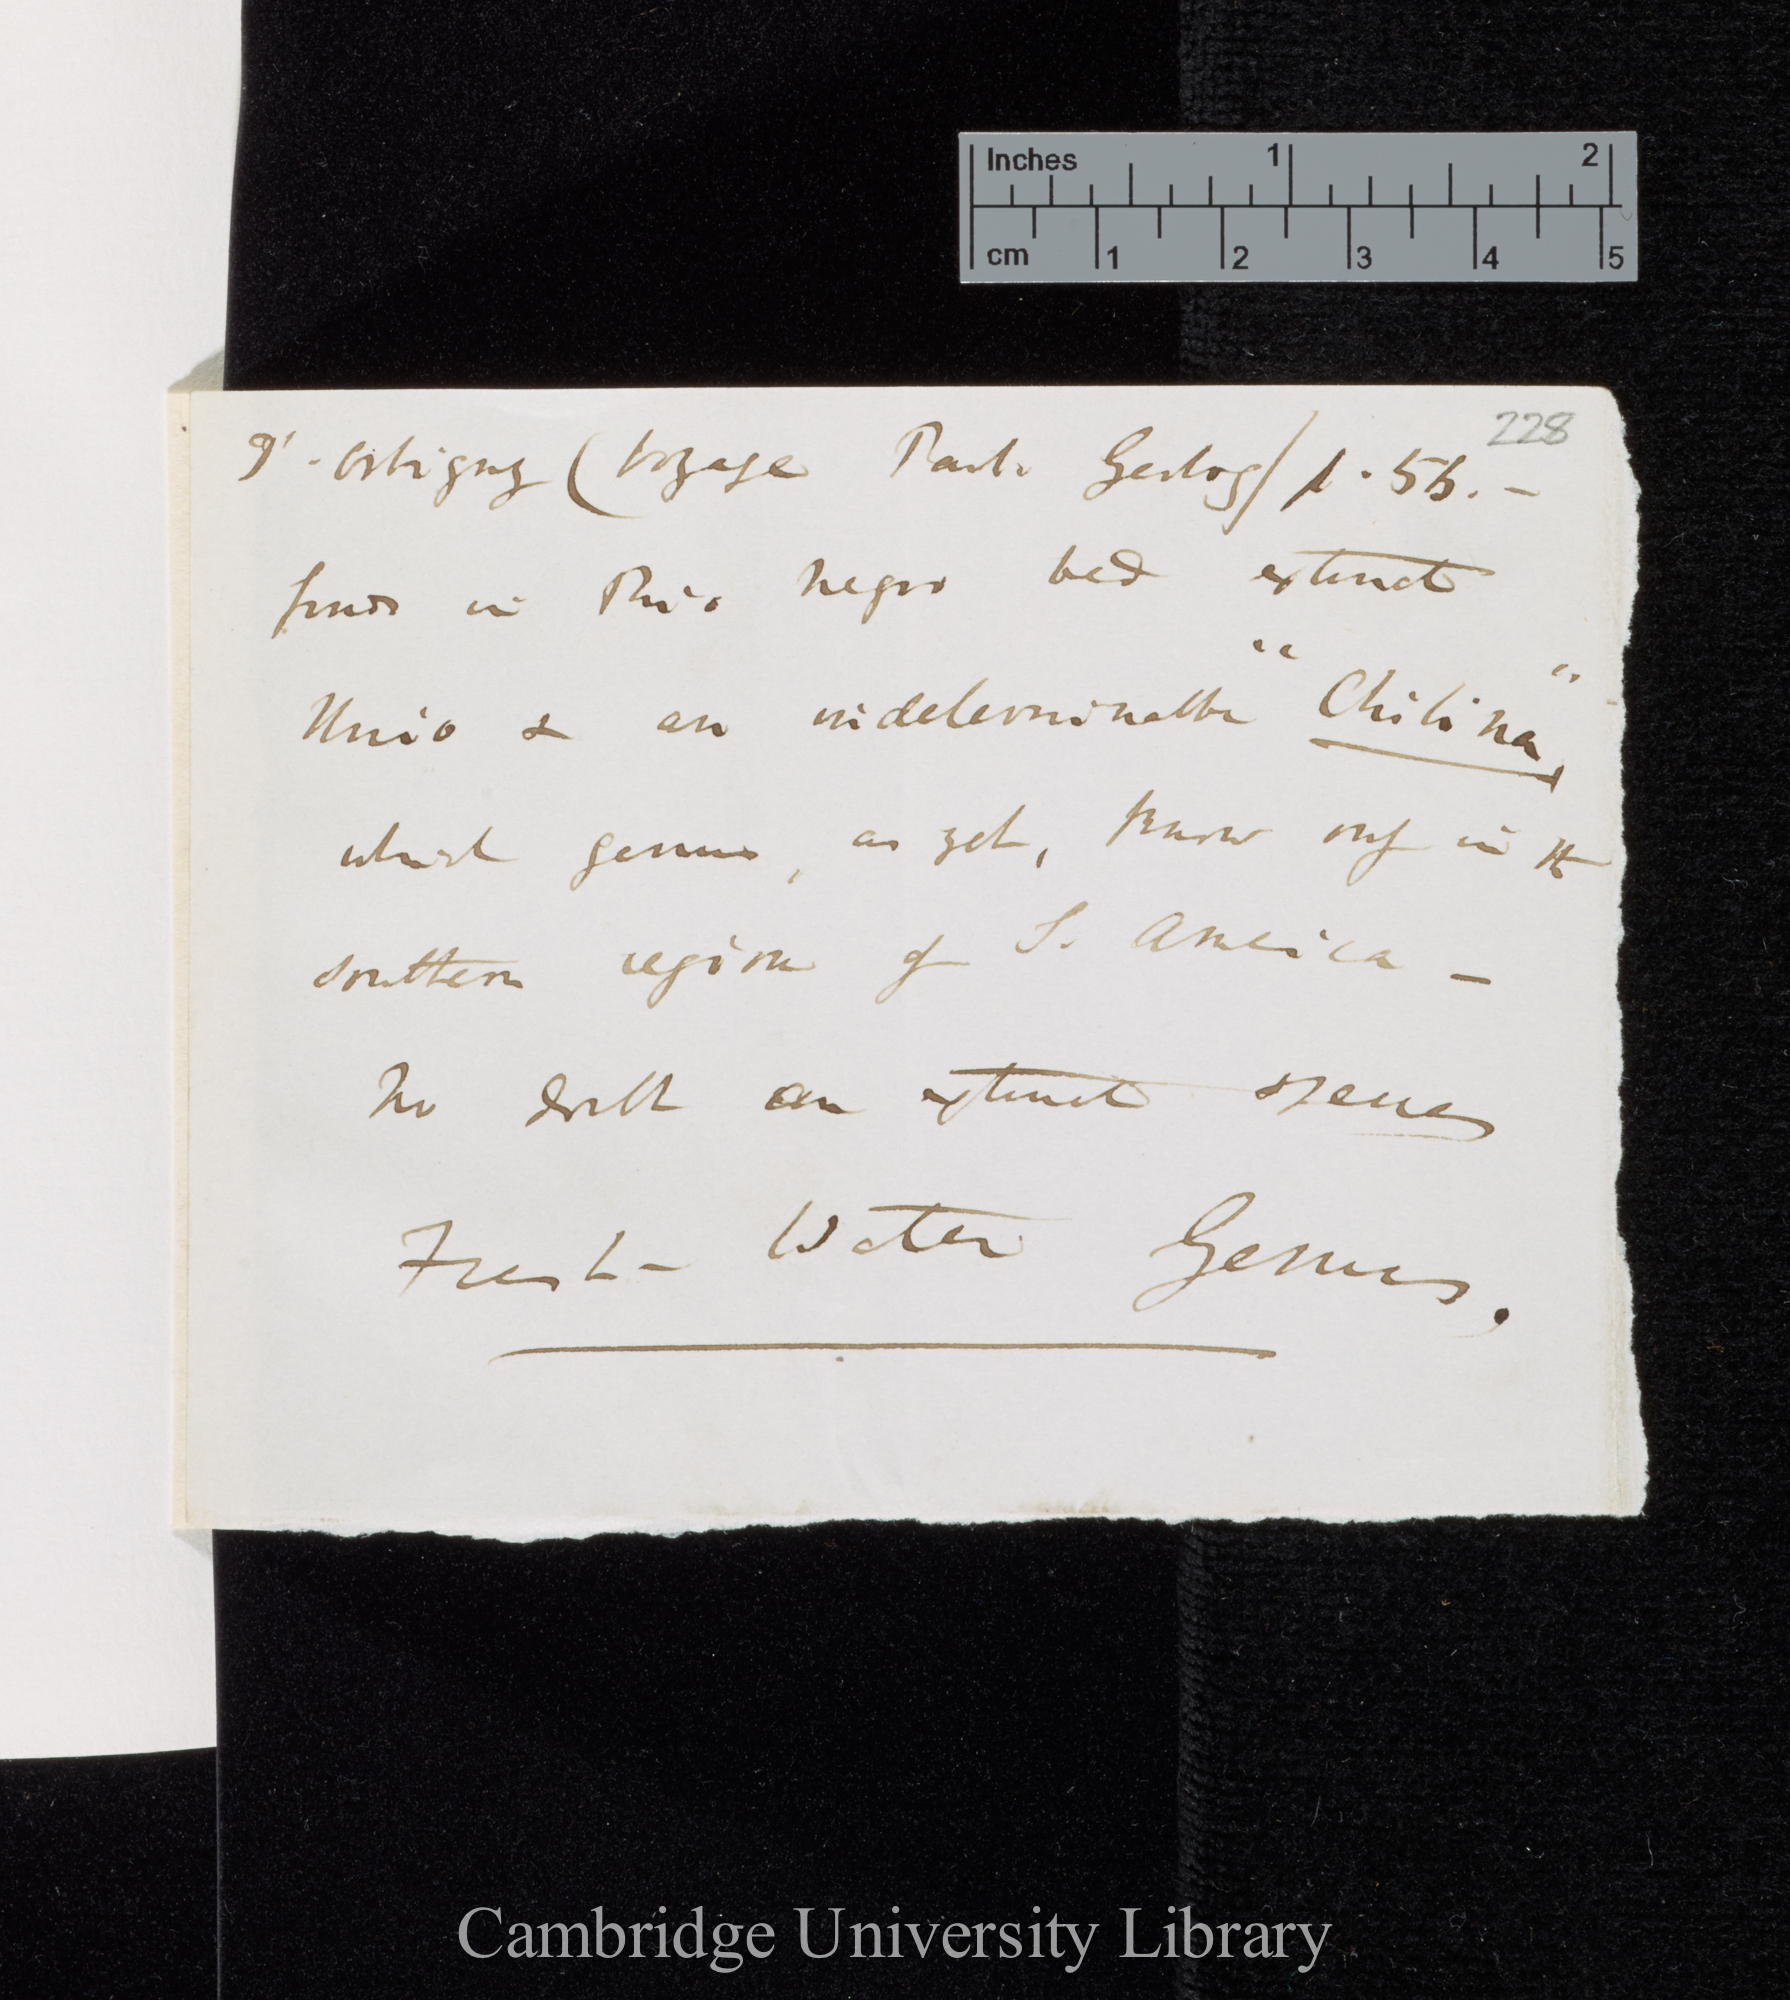 Inches 1 2
cm 1 2 3 4 5
228
D'. Orbigny (Voyage Part. Geolog) p. 55. –
finds in Rio Negro bed extinct
Unio & an indeterminable "Chilina",
which genus, as yet, know only in the
southern region of S. America –
No doubt an extinct species
Fresh-Water Genus.
Cambridge University Library